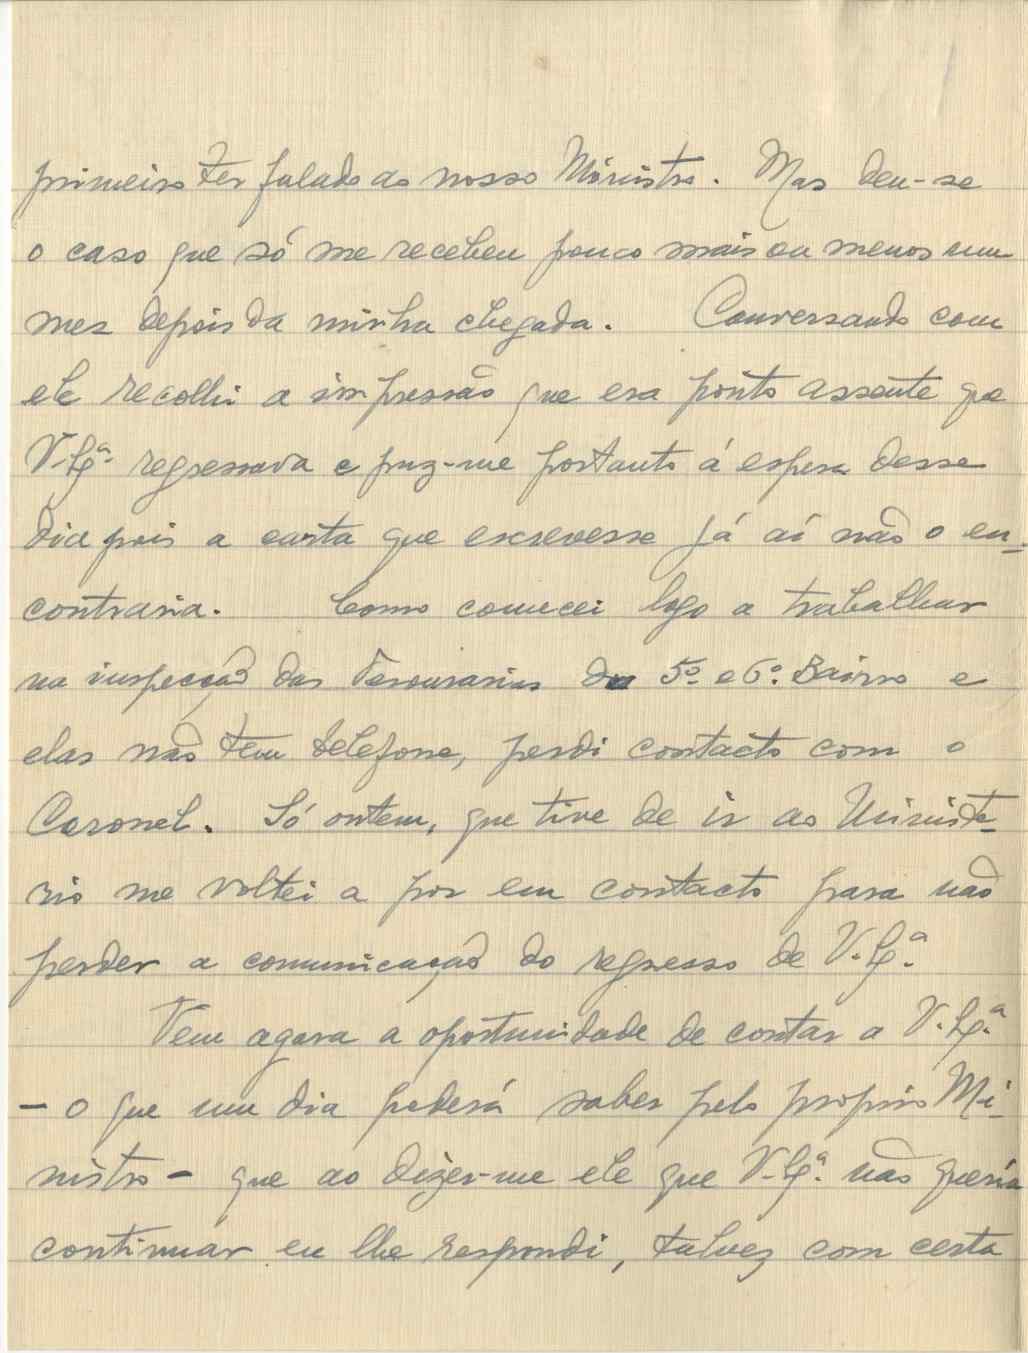 primeiro ter falado ao nosso Ministro. Mas deu-se
o caso que só me recebeu pouco mais ou menos um
mez depois da minha chegada. Conversando com
ele recolhi a impressão que era ponto assente que
V. Ex.ª regressava e puz-me portanto á espera desse
dia pois a carta que escrevesse já aí não o en-
contraria. Como comecei logo a trabalhar
na inspecção das Tesourarias do 5º e 6º. Bairro e
elas não tem telefone, perdi contacto com o
Coronel. Só ontem, que tive de ir ao Ministe-
rio me voltei a por em contacto para não
perder a comunicação do regresso de V. Ex.ª
Vem agora a oportunidade de contar a V. Ex.ª
- o que um dia poderá saber pelo proprio Mi-
nistro - que ao dizer-me ele que V. Ex.ª não queria
continuar eu lhe respondi, talvez com certa